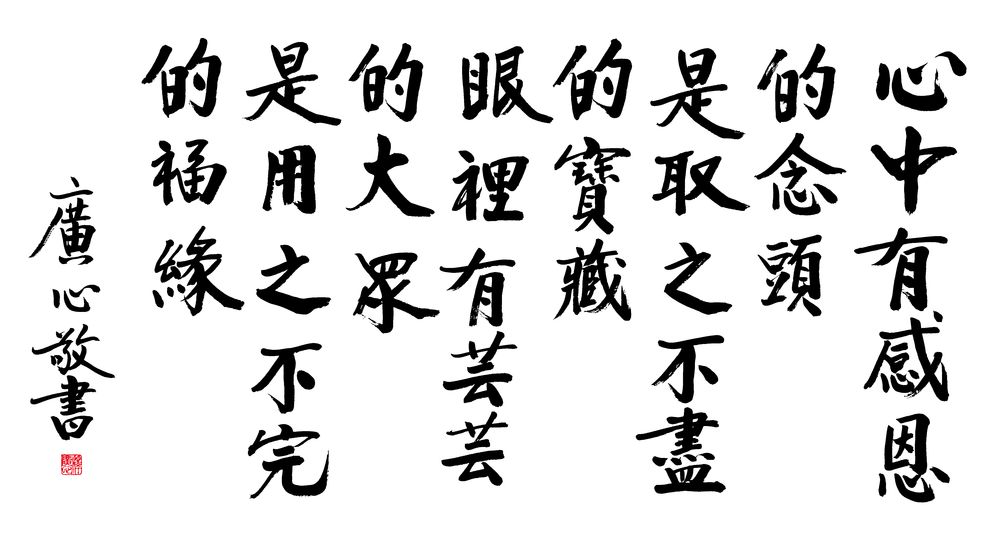 心中有感恩
的念頭
是取之不盡
的寶藏
眼裡有芸芸
的大眾
是用之不完
的福緣
廣心敬書